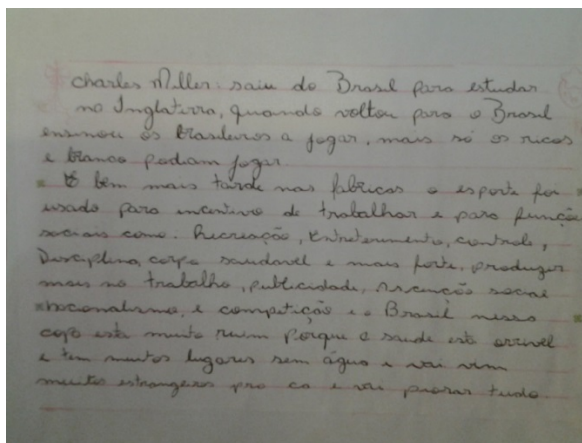 charles Miller: saiu do Brasil para estudar
na Inglaterra, quando voltou para o Brasil
ensinou os brasileiros a jogar, mais só os ricos
e branco podiam jogar.
E bem mais tarde nas fabricas o esporte foi
usado para incentivo de trabalhar e para função
sociais como: Recreação, Entreterimento, controle,
Disciplina, corpo saudavel e mais forte, produzir
mais no trabalho, publicidade, Ascenção social
Nacionalismo, e competição e o Brasil nessa
copa esta muito ruim porque a saude está orrivel
e tem muitos lugares sem água e vai vim
muitos estrangeros pra ca e vai piorar tudo.